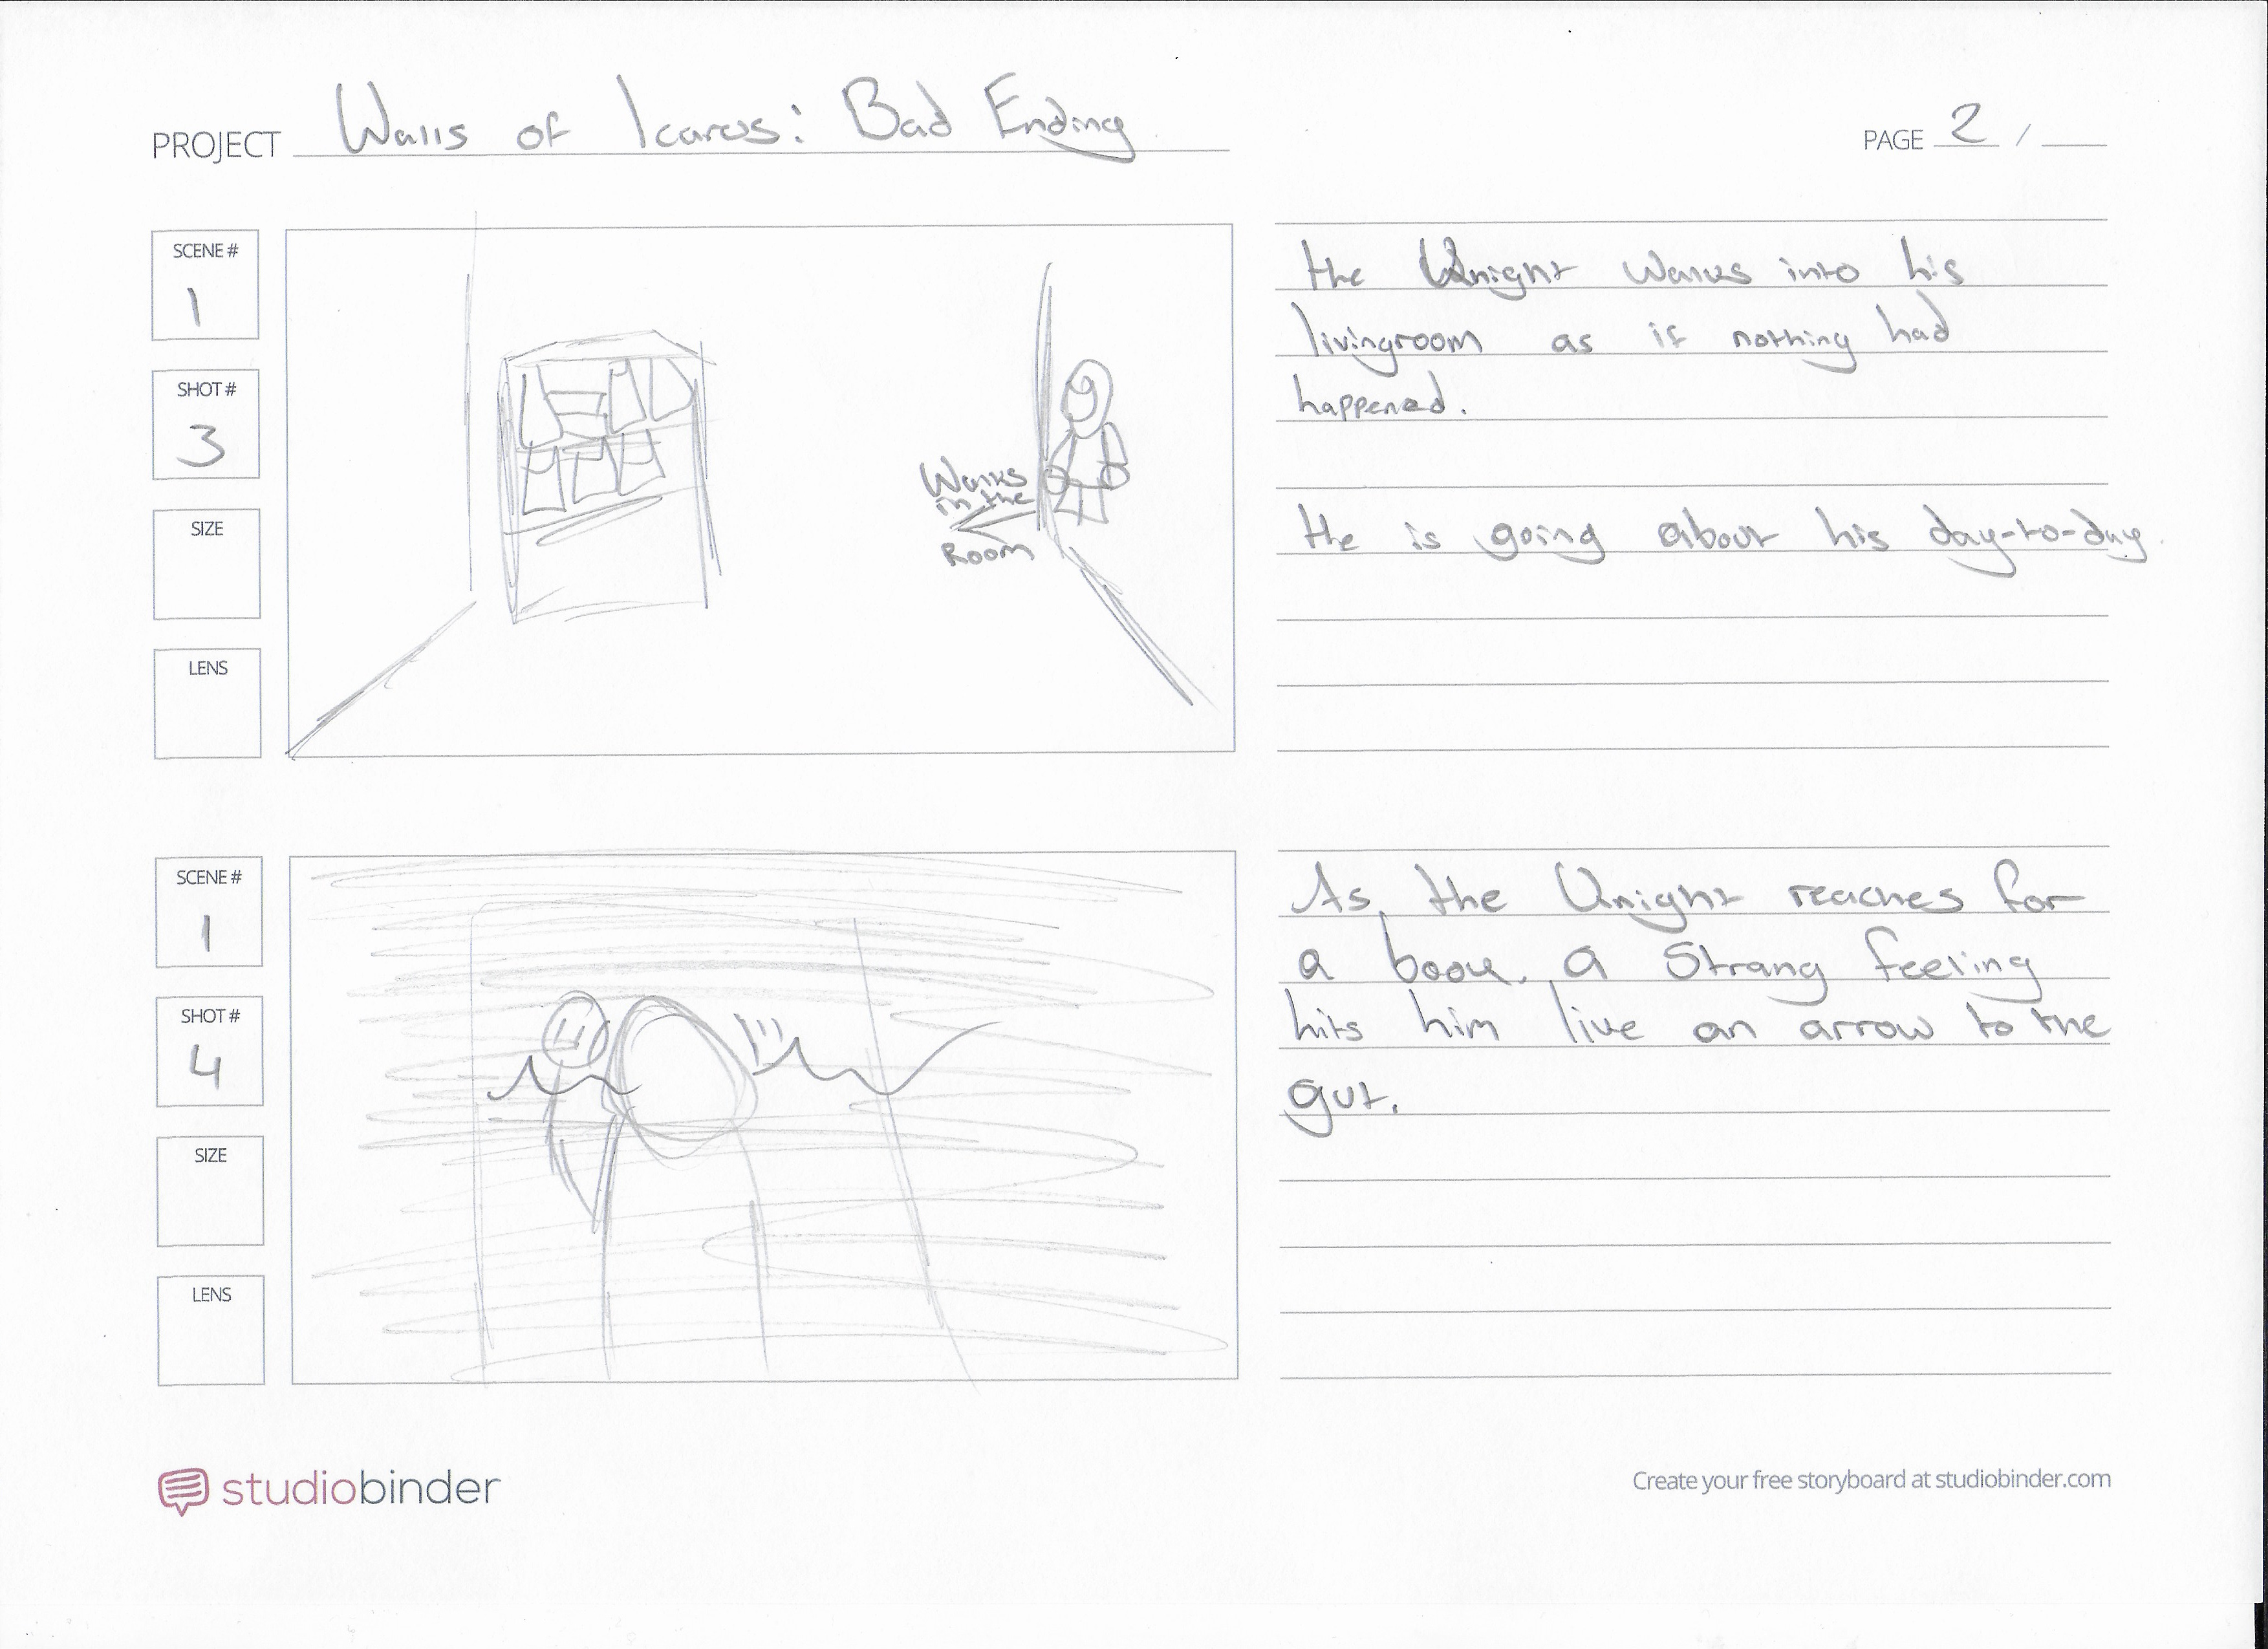 PROJECT Walls of Icarus: Bad Ending
PAGE 2 /
SCENE #
1
SHOT #
3
SIZE
LENS
Walks
in the
Room
the Knight walks into his
livingroom as if nothing had
happened.
He is going about his day-to-day.
SCENE #
1
SHOT #
4
SIZE
LENS
As, the Knight reaches for
a book, a Strang feeling
hits him like an arrow to the
gut.
studiobinder
Create your free storyboard at studiobinder.com